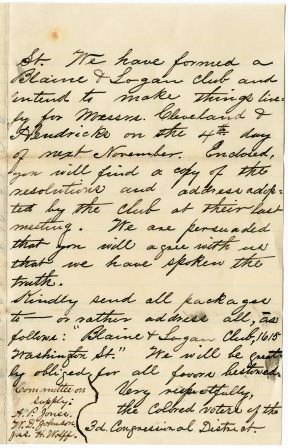 St. We have formed a
Blaine & Logan Club and
intend to make things live-
ly for Messrs. Cleveland &
Hendricks on the 4th day
of next November. Enclosed,
you will find a copy of the
resolutions and address adop-
ted by the club at their last
meeting. We are persuaded
that you will agree with us
that we have spoken the
truth.
Kindly send all packages
to — or rather address all, as
follows: "Blaine & Logan Club, 1615
Washington St." We will be great-
ly obliged for all favors bestowed.
Very respectfully,
the Colored voters of the
3d. Congressional District.
Committee on
Supply,
A. P. Jones.
W. H. Johnson
Jas. H. Wolff.